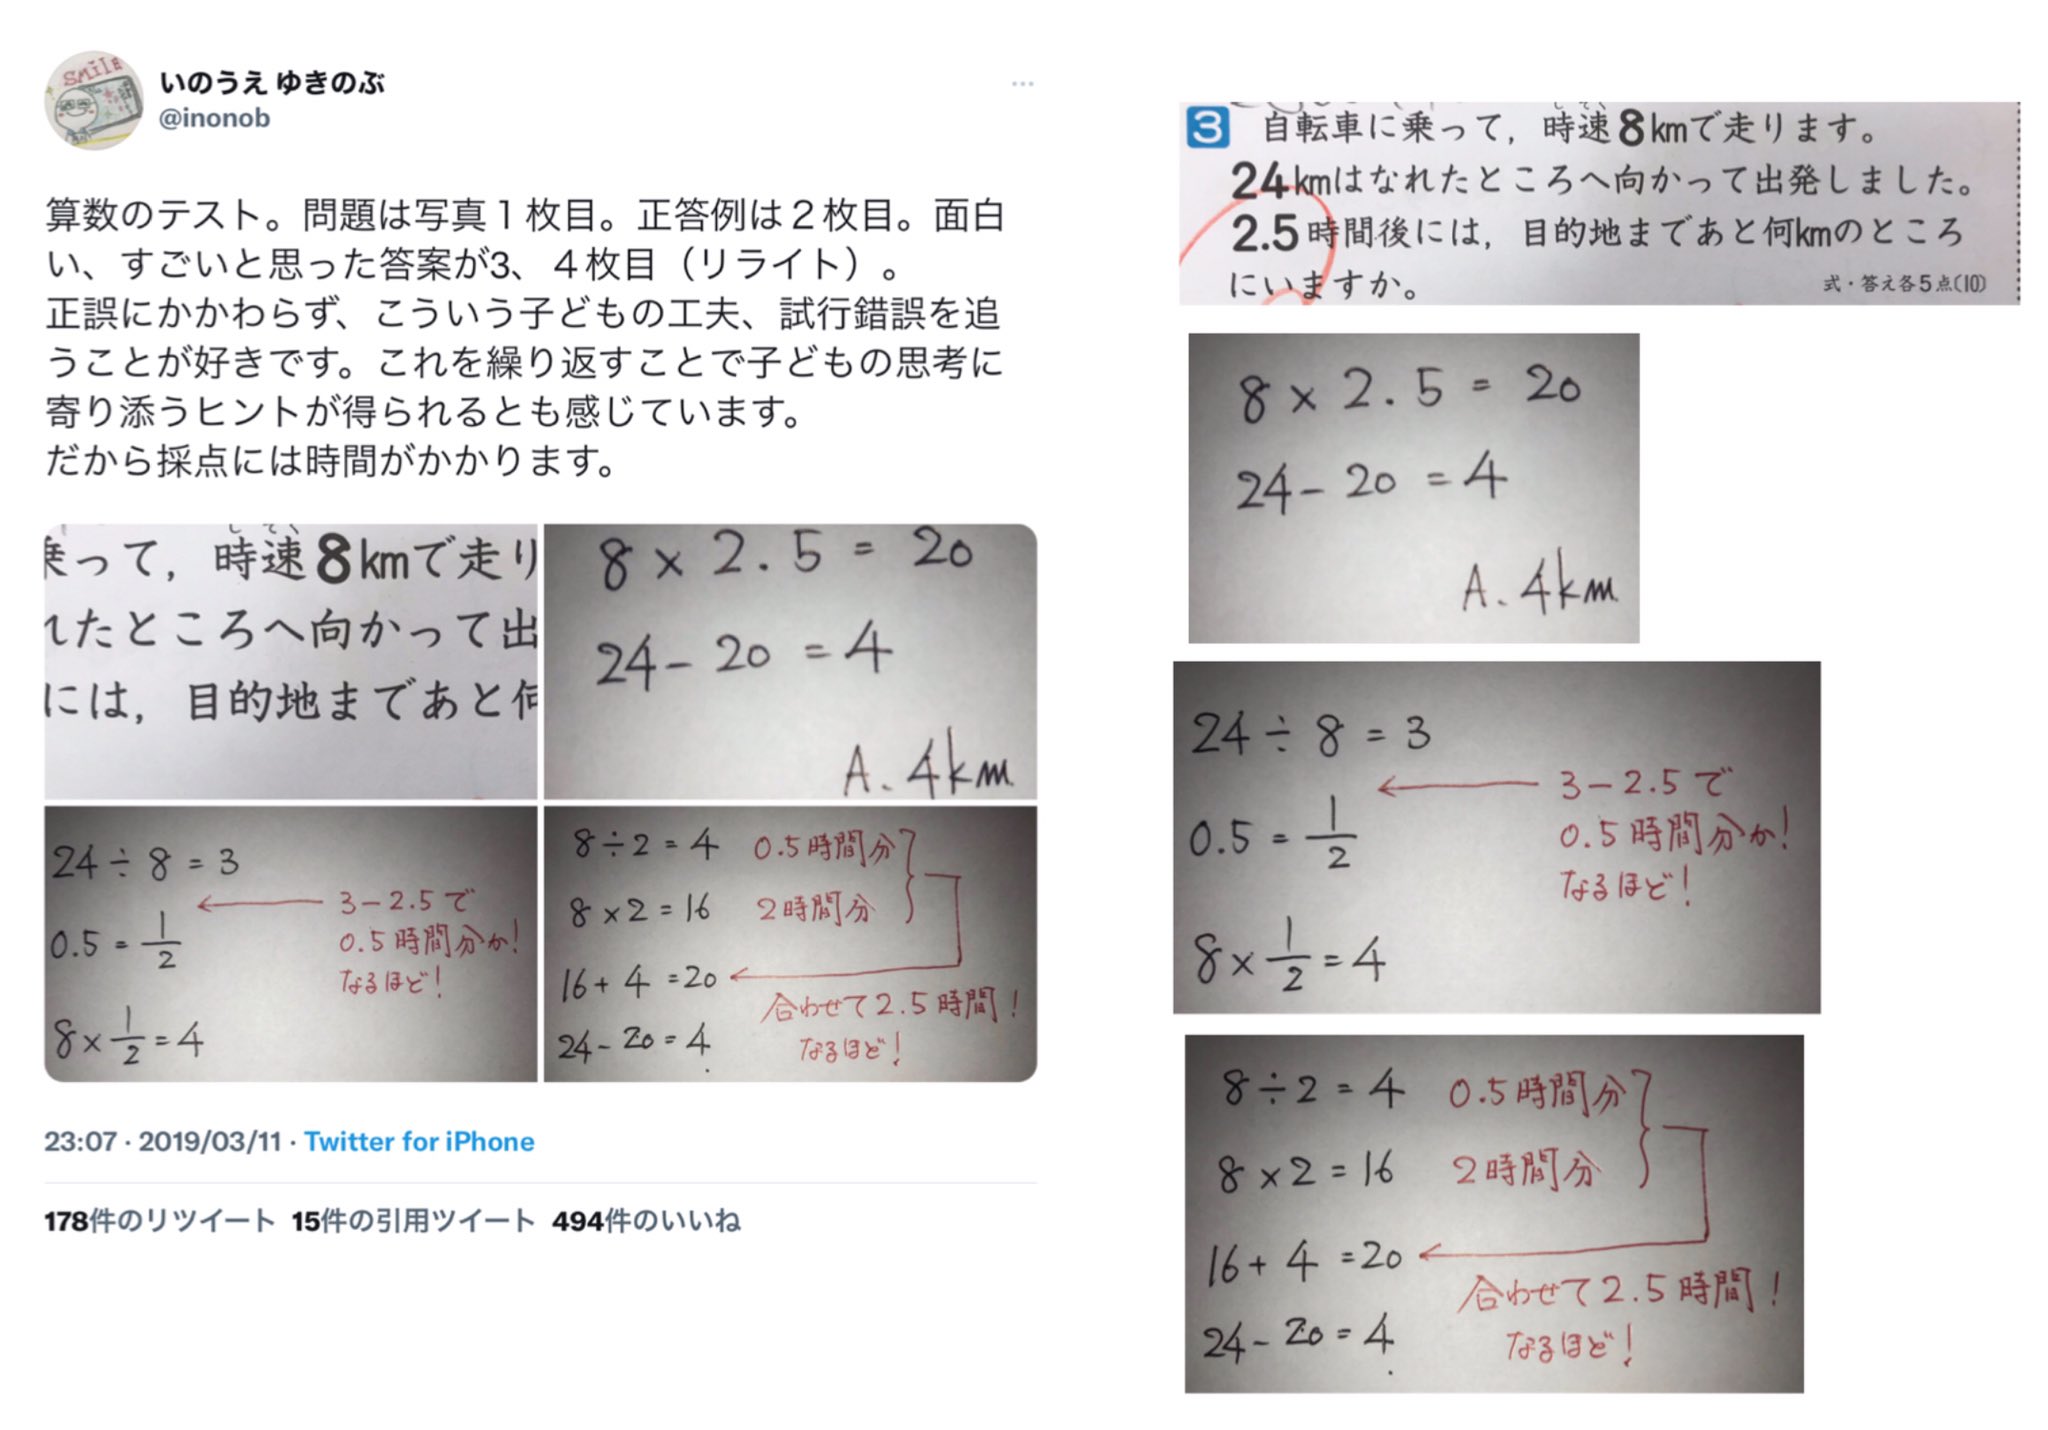 smile
いのうえ ゆきのぶ
@inonob
算数のテスト。問題は写真１枚目。正答例は２枚目。面白
い、すごいと思った答案が3、４枚目（リライト）。
正誤にかかわらず、こういう子どもの工夫、試行錯誤を追
うことが好きです。これを繰り返すことで子どもの思考に
寄り添うヒントが得られるとも感じています。
だから採点には時間がかかります。
乗って，時速8kmで走り
れたところへ向かって出
には，目的地まであと何
8 × 2.5 = 20
24 − 20 = 4
A. 4km
24 ÷ 8 = 3
3 − 2.5 で
0.5 = 1/2
0.5 時間分か！
なるほど！
8 × 1/2 = 4
8 ÷ 2 = 4 0.5時間分
8 × 2 = 16 2時間分
16 + 4 = 20
合わせて2.5時間！
24 − 20 = 4
なるほど！
23:07 · 2019/03/11 · Twitter for iPhone
178件のリツイート 15件の引用ツイート 494件のいいね
3 自転車に乗って，時速8kmで走ります。
24kmはなれたところへ向かって出発しました。
2.5時間後には，目的地まであと何kmのところ
にいますか。 式・答え各5点(10)
8 × 2.5 = 20
24 − 20 = 4
A. 4km
24 ÷ 8 = 3
3 − 2.5 で
0.5 = 1/2
0.5 時間分か！
なるほど！
8 × 1/2 = 4
8 ÷ 2 = 4 0.5時間分
8 × 2 = 16 2時間分
16 + 4 = 20
合わせて2.5時間！
24 − 20 = 4
なるほど！